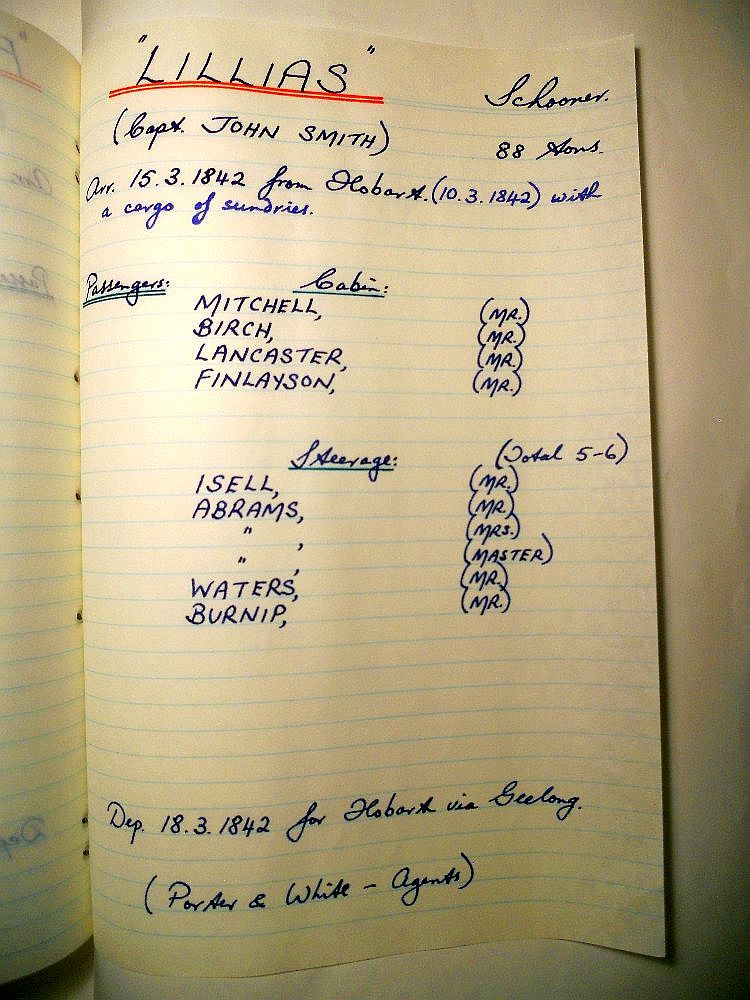 "LILLIAS"
Schooner.
(Capt. JOHN SMITH)
88 tons.
Arr. 15.3.1842 from Hobart. (10.3.1842) with
a cargo of sundries.
Passengers: Cabin:
MITCHELL, (MR.)
BIRCH, (MR.)
LANCASTER, (MR.)
FINLAYSON, (MR.)
Steerage: (Total 5-6)
ISELL, (MR.)
ABRAMS, (MR.)
" , (MRS.)
" , (MASTER)
WATERS, (MR.)
BURNIP, (MR.)
Dep. 18.3.1842 for Hobart via Geelong.
(Porter & White - Agents)